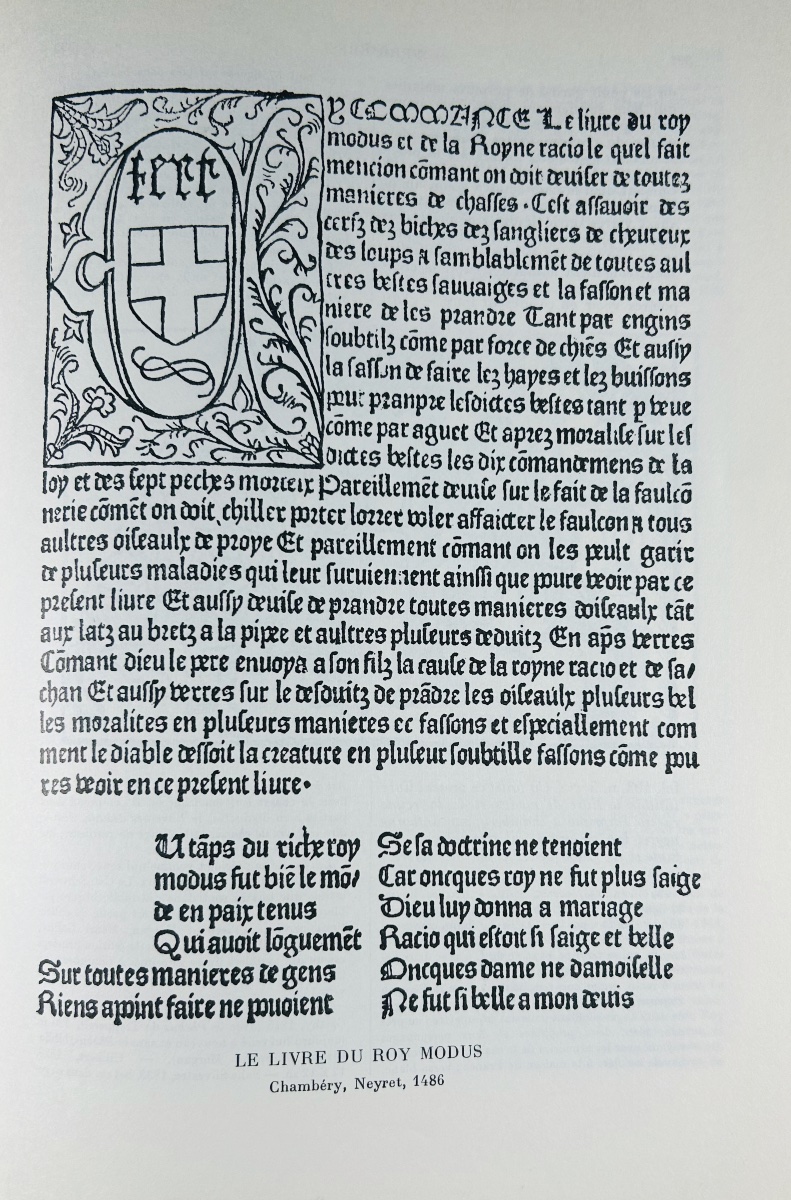 fert
Y COMMANCE Le liure du roy
modus et de la Royne racio le quel fait
mencion cõmant on doit deuiser de toutez
manieres de chasses. Cest assauoir des
cerfz dez biches dez sangliers de cheureux
des loups ⁊ samblablemẽt de toutes aul
tres bestes sauuaiges et la fasson et ma
niere de les prandre Tant par engins
soubtilz cõme par force de chiẽs Et aussy
la fasson de faire lez hayes et lez buissons
pour pranpre lesdictes bestes tant p veue
cõme par aguet Et aprez moralise sur les
dictes bestes les dix cõmandemens de la
loy et des sept peches morteix Pareillemẽt deuise sur le fait de la faulcõ
nerie cõmẽt on doit chiller porter lorrer voler affaicter le faulcon ⁊ tous
aultres oiseaulx de proye Et pareillement cõmant on les peult garir
de pluseurs maladies qui leur suruiennent ainssi que poure veoir par ce
present liure Et aussy deuise de prandre toutes manieres doiseaulx tãt
aux latz au bretz a la pipee et aultres pluseurs deduitz En ap̃s verres
Cõmant dieu le pere enuoya a son filz la cause de la royne racio et de sa/
than Et aussy verres sur le desduitz de prãdre les oiseaulx pluseurs bel
les moralites en pluseurs manieres et fassons et especiallement com
ment le diable dessoit la creature en pluseur soubtille fassons cõme pou
res veoir en ce present liure.
U tãps du riche roy
modus fut biẽ le mõ/
de en paix tenus
Qui auoit lõguemẽt
Sur toutes manieres de gens
Riens apoint faire ne pouoient
Se sa doctrine ne tenoient
Car oncques roy ne fut plus saige
Dieu luy donna a mariage
Racio qui estoit si saige et belle
Oncques dame ne damoiselle
Ne fut si belle a mon deuis
LE LIVRE DU ROY MODUS
Chambéry, Neyret, 1486